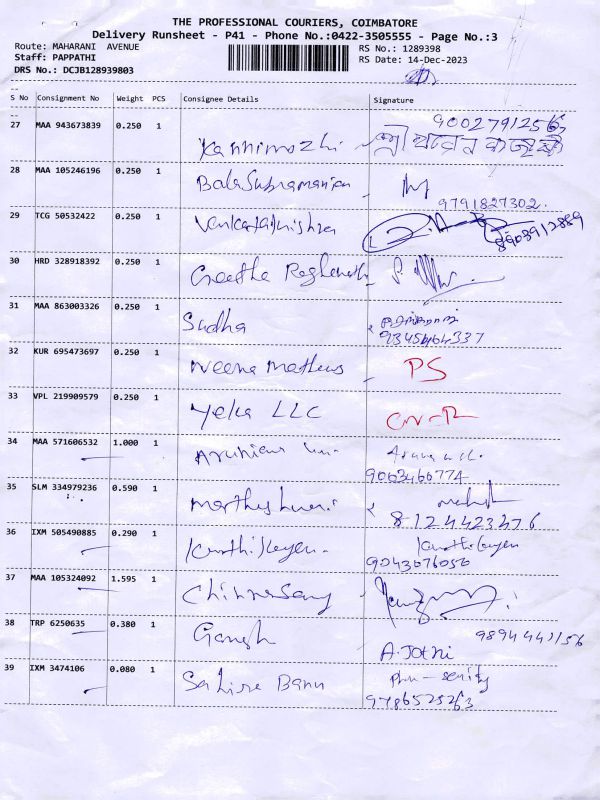 THE PROFESSIONAL COURIERS, COIMBATORE
Delivery Runsheet - P41 - Phone No.:0422-3505555 - Page No.:3
Route: MAHARANI AVENUE RS No.: 1289398
Staff: PAPPATHI RS Date: 14-Dec-2023
DRS No.: DCJB128939803
S No Consignment No Weight PCS Consignee Details Signature
9002791256
27 MAA 943673839 0.250 1 Kannimozhi
28 MAA 105246196 0.250 1 BalaSubramanian
9791827302.
29 TCG 50532422 0.250 1 8903912889
30 HRD 328918392 0.250 1 Geetha
31 MAA 863003326 0.250 1 Sudha
9345464337
32 KUR 695473697 0.250 1 Neena Mathews PS
33 VPL 219909579 0.250 1 Yelka LLC
34 MAA 571606532 1.000 1
9003466774
35 SLM 334979236 0.590 1
8124423476
36 IXM 505490885 0.290 1 Karthikeyan. Karthikeyan
9043076056
37 MAA 105324092 1.595 1 Chinnasamy
38 TRP 6250635 0.380 1 Ganesh 9894441156
A. Jothi
39 IXM 3474106 0.080 1 Banu
9786525263